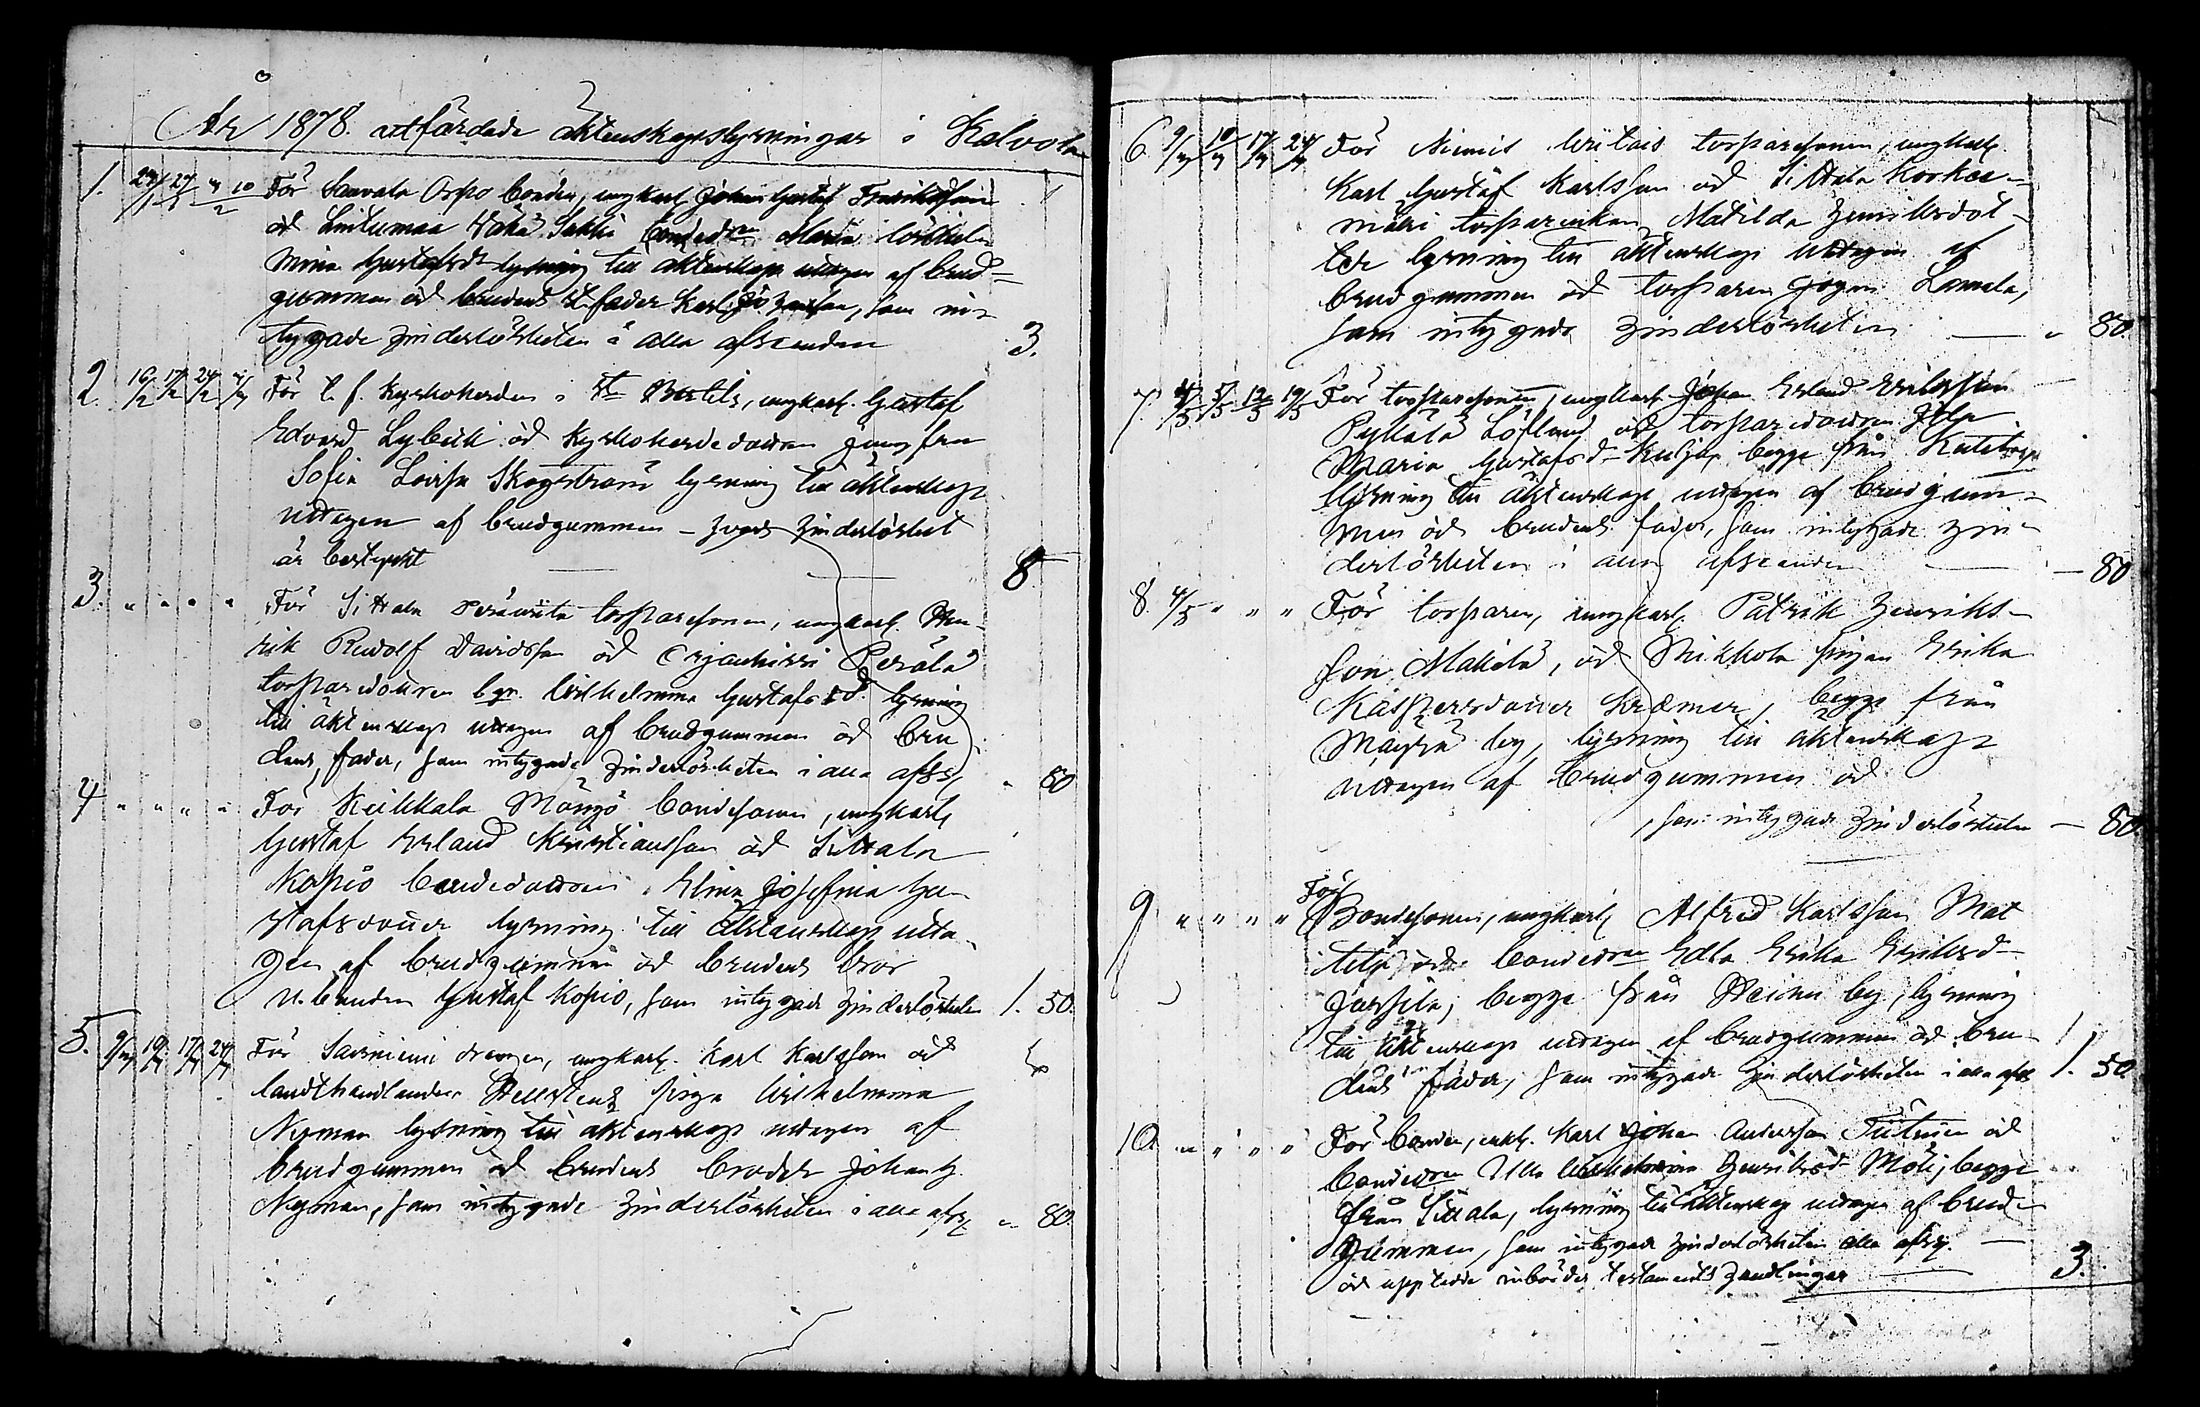 År 1878. utfärdade äktenskapslysningar i Kalvola
1. 24/1 27/1 3 10/2 För Sauvala Orpo bonden, ungkarl Johan Gustaf Fredriksson
och Lintumaa bondedrn Maria Wilhel
mina Gustafsdr lysning till äktenskap uttagen af brud-
gummen och brudens st.fader Karl, som in-
tygade hinderlösheten i alla afseenden 3.
2. 16/2 17/2 24/2 3/3 För t. f. Kyrkoherden i St Bertils, ungkarl. Gustaf
Edvard Lybeck och Kyrkoherdedottren jungfru
Sofia Lovisa Skogström lysning till äktenskap
uttagen af brudgummen - hvars hinderlöshet
är bestyrkt 8
3. " " " " För Sittala torparesonen, ungkarl. Hen-
rik Rudolf Davidsson och Perälä
torparedottren Wilhelmina Gustafsd. lysning
till äktenskap uttagen af brudgummen och bru
dens fader, som intygade hinderlösheten i alla afss. " 80
4 " " " " För Keikkala Mäuyö bondesonen, ungkarl
Gustaf Erland Kristiansson och Sittala
Kopio bondedottren Elina Josefina Gu-
stafsdotter lysning till äktenskap utta-
gen af brudgummen och brudens bror
u. bonden Gustaf Kopio, som intygade hinderlösheten 1. 50.
5. 9/3 10/3 17/3 24/3 För Saarniemi drengen, ungkarl. Karl Karlsson och
landthandlanden Hellstens piga Wilhelmina
Nyman lysning till äktenskap uttagen af
brudgummen och brudens broder Johan G.
Nyman, som intygade hinderlösheten i alla afss. " 80.
6. 9/3 10/3 17/3 24/3 För Niemis torparesonen, ungkarl.
Karl Gustaf Karlsson och Sittala Korkee-
mäki torparenkan Matilda Henriksdot-
ter lysning till äktenskap uttagen af
brudgummen och torparen Lamala,
som intygade hinderlösheten — " 80.
7. 4/5 5/5 12/5 19/5 För torparesonen, ungkarl Johan Erland Eriksson
Pykälä Löflund och torparedottren
Maria Gustafsd. begge från
lysning till äktenskap uttagen af brudgum-
men och brudens fader, som intygade hin-
derlösheten i alla afseenden — 80
8. 4/5 " " " För torparen, ungkarl Patrik Henriks-
son Mäkelä, och Mikkola pigan Erika
Kaspersdotter Kræmer, begge från
by, lysning till äktenskap
uttagen af brudgummen och
, som intygade hinderlösheten — 80.
9 " " " " För
Bondesonen, ungkarl Alfred Karlsson Mat
tila och bondedrn Edla Erika Eriksd-
Jussila, begge från by, lysning
till äktenskap uttagen af brudgummen och bru-
dens fader, som intygade hinderlösheten i alla afss 1. 50
10. " " " " För bonden, enkl. Karl Johan Andersson och
bondedrn Ulla Wilhelmina Henriksd- begge
från Sittala, lysning till äktenskap uttagen af brud-
gummen, som intygade hinderlösheten alla afss. —
och uppledde inbördes testaments handlingar 3.